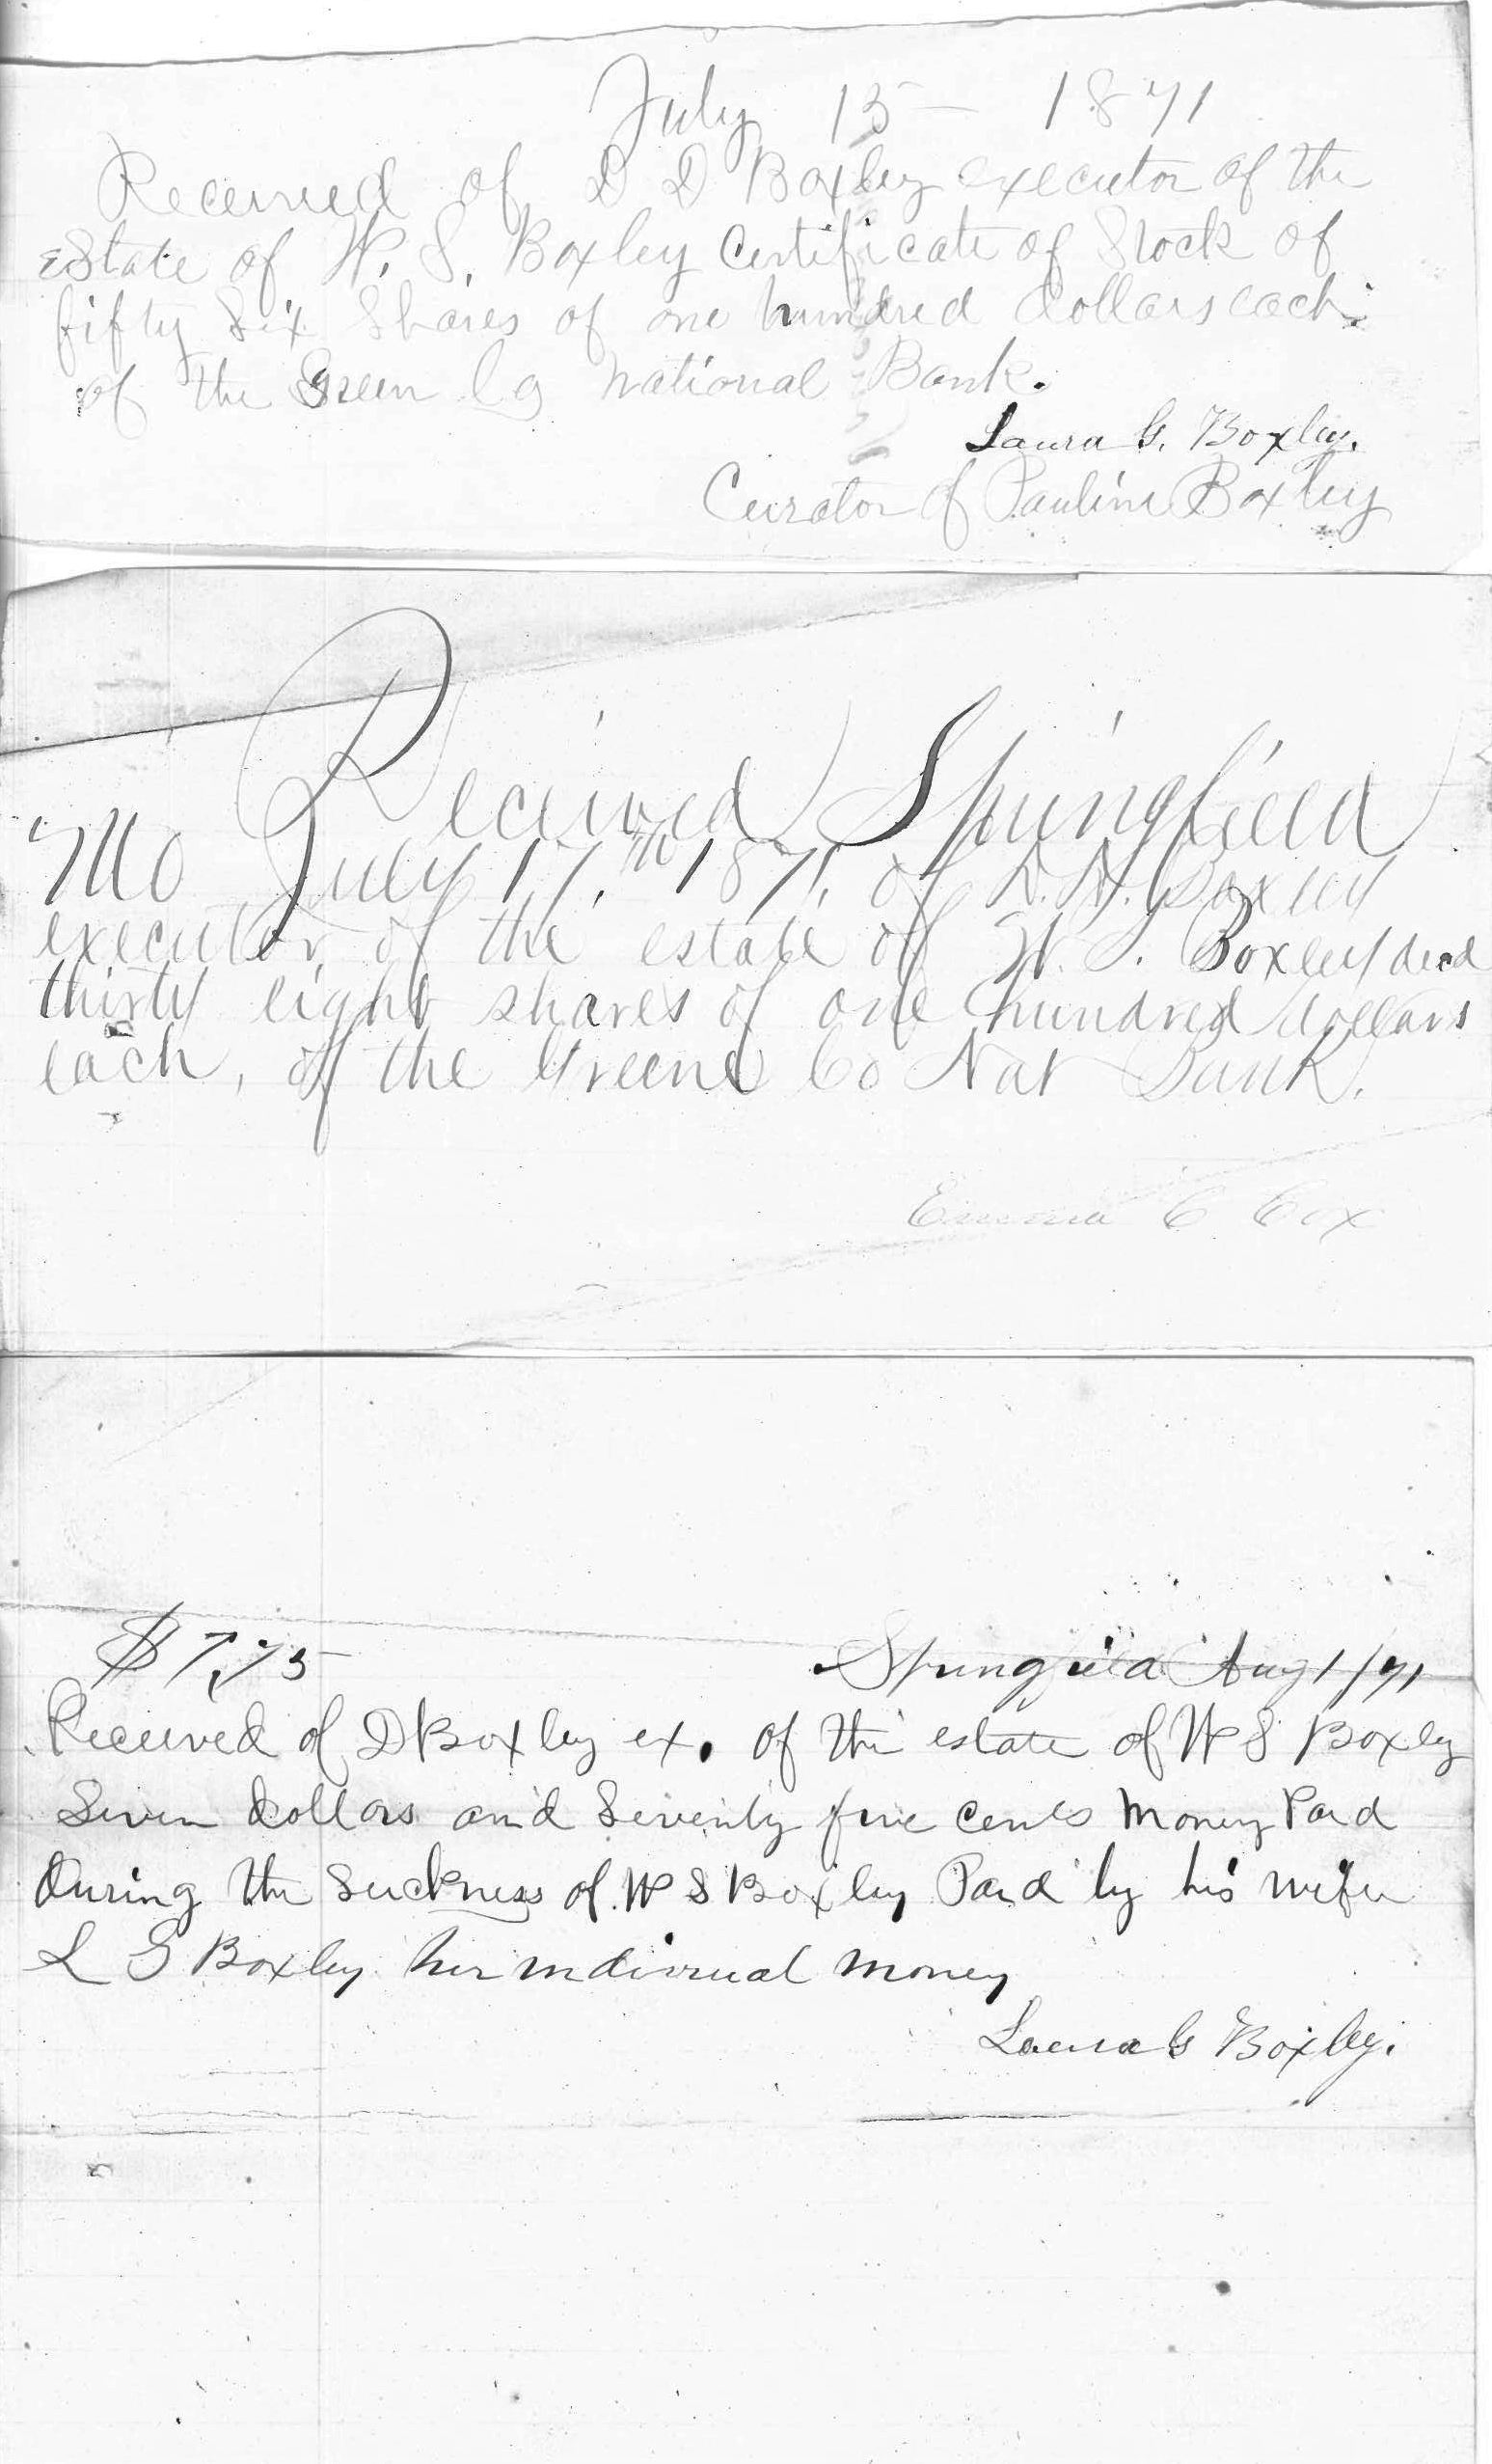 July 15 — 1871
Received of D D Boxley executor of the
estate of W. S. Boxley Certificate of Stock of
fifty six Shares of one hundred dollars each
of the Green Co National Bank.
Laura G. Boxley.
Curator of Pauline Boxley
Received Springfield
Mo July 17th 1871, of D. D. Boxley
executor of the estate of W. S. Boxley decd
thirty eight shares of one hundred dollars
each, of the Greene Co Nat Bank.
Emma C Cox
$7,75 Springfield Aug 1/71
Received of D Boxley ex. of the estate of W S Boxley
Seven dollars and Seventy five cents money Paid
During the Sickness of W S Boxley Paid by his wife
L G Boxley her individual money
Laura G Boxley.